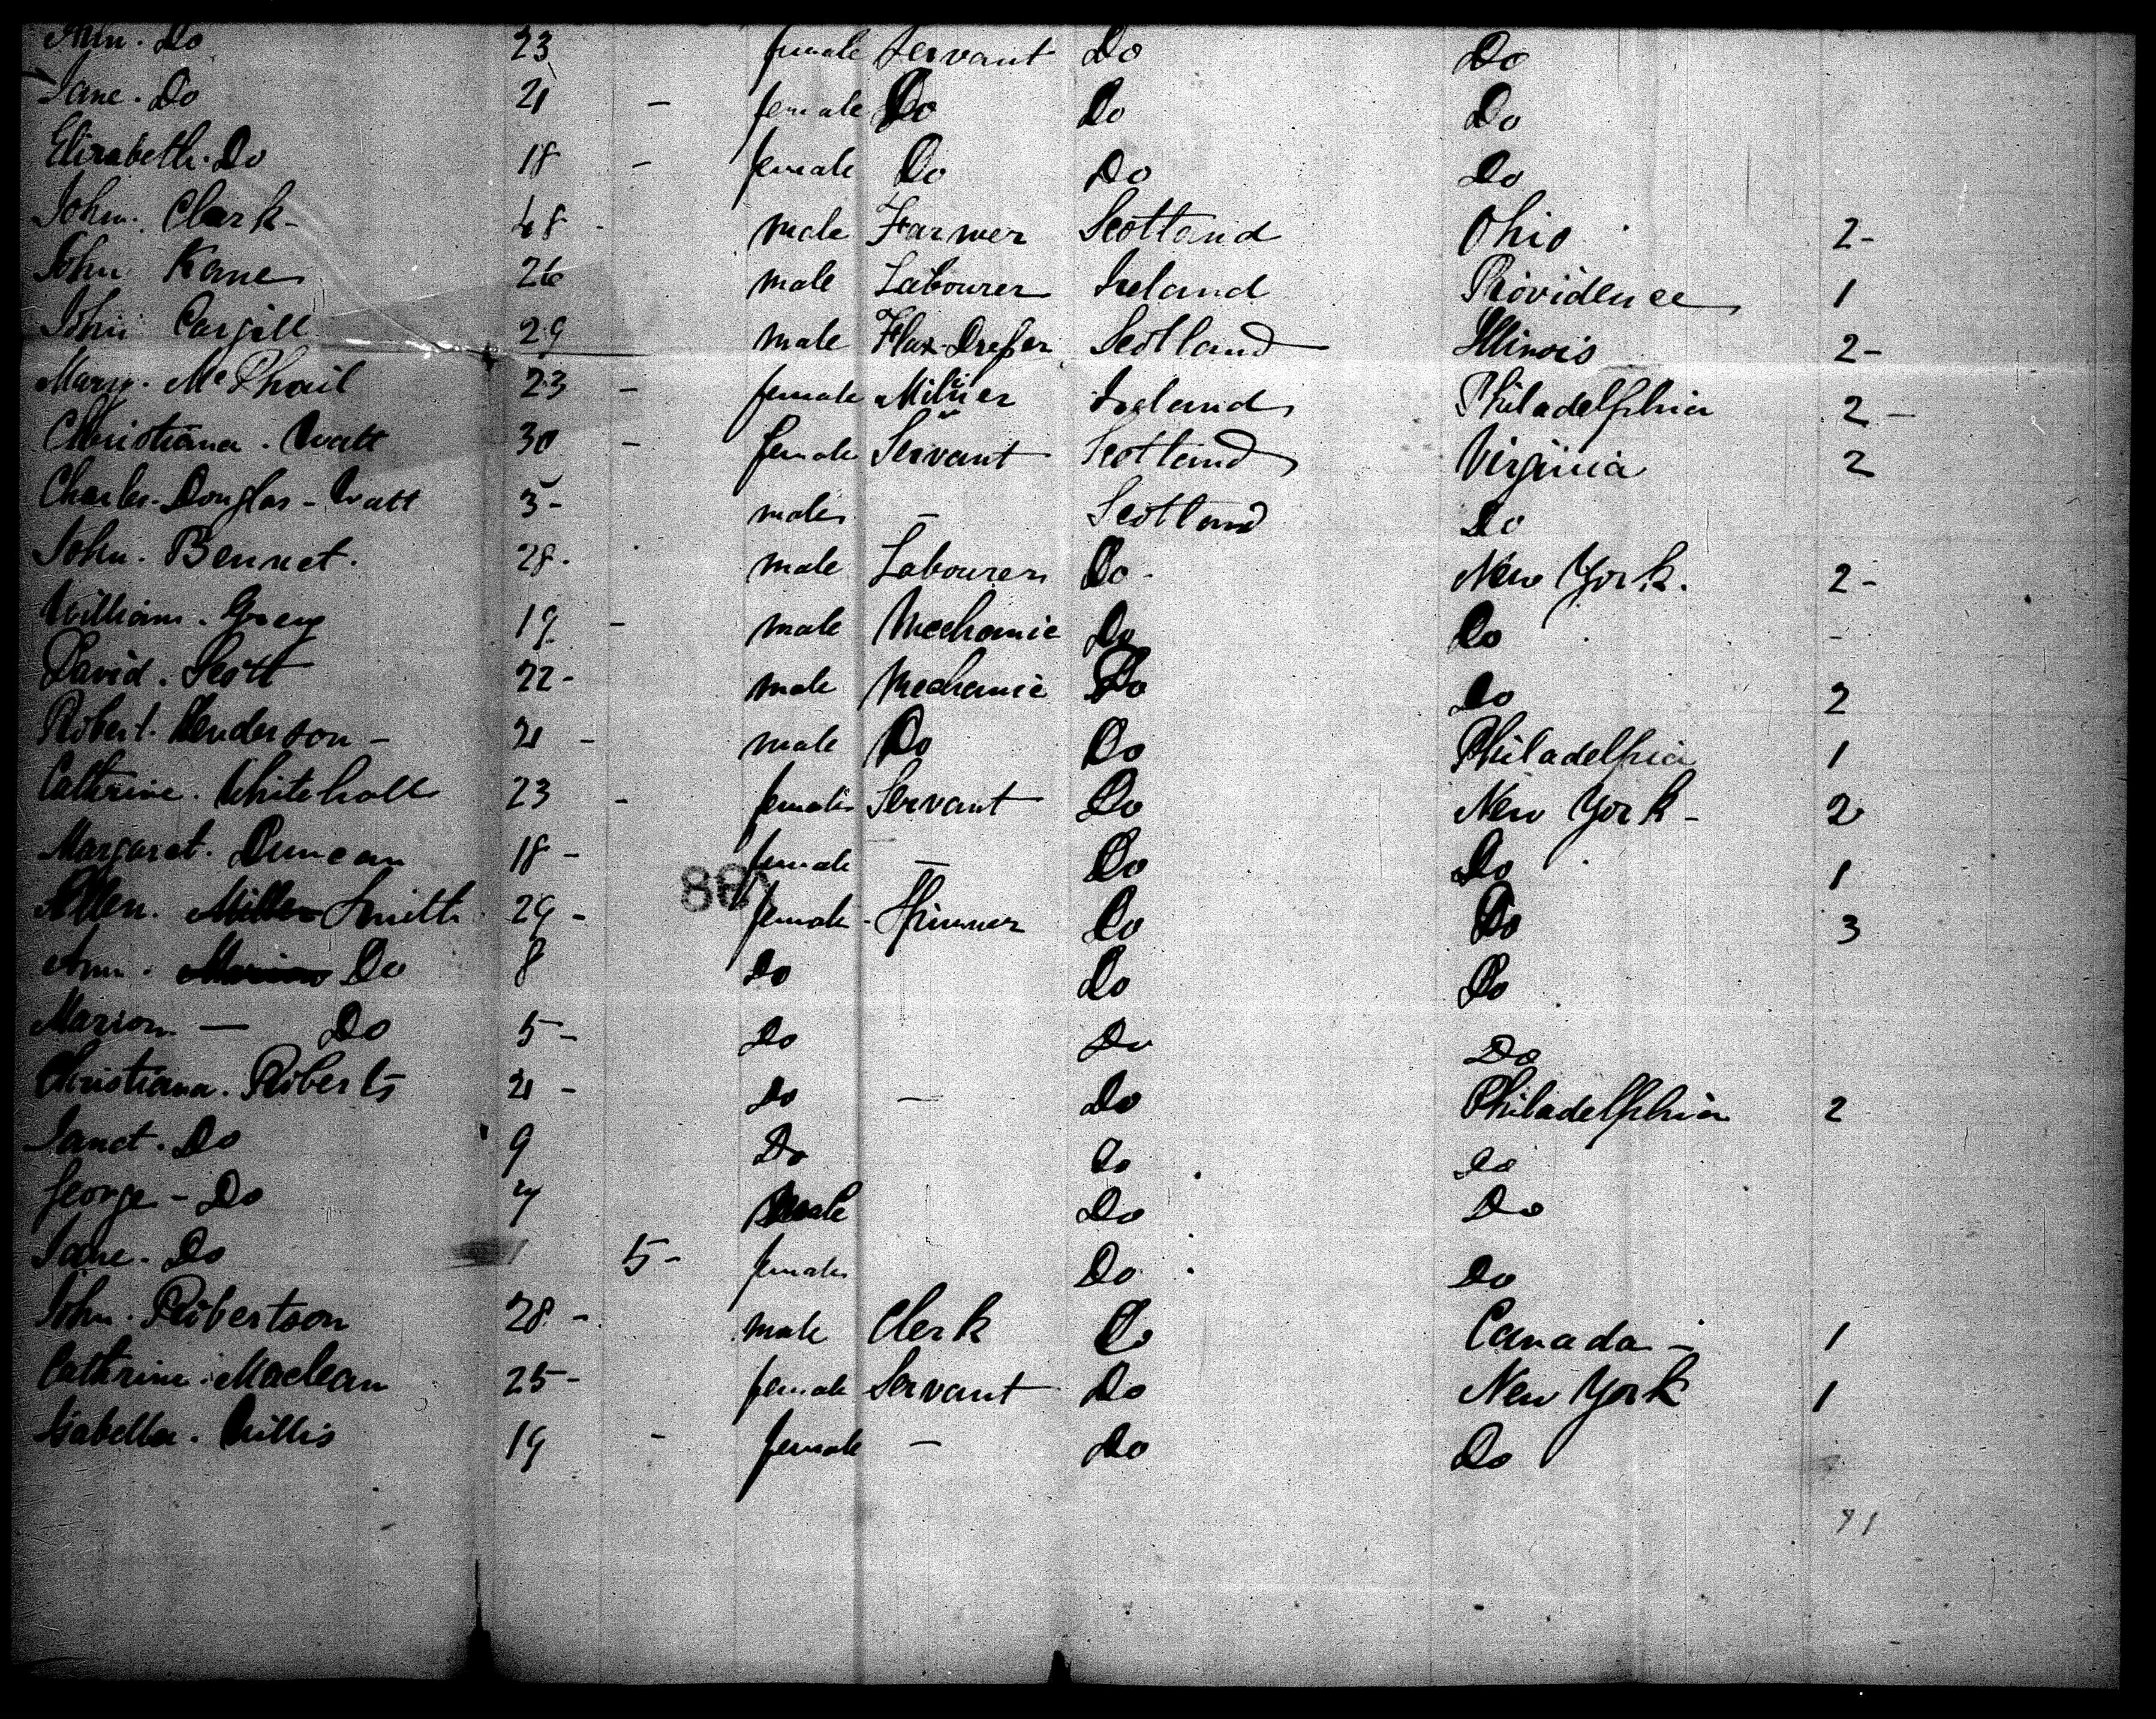 Ann. Do 23 female Servant Do Do
Jane. Do 21 - female Do Do Do
Elizabeth. Do 18 - female Do Do Do
John. Clark - 48 - male Farmer Scotland Ohio 2-
John Kane 26 male Labourer Ireland Providence 1
John Cargill 29 male Flax-Dresser Scotland Illinois 2-
Mary. McPhail 23 - female Ireland Philadelphia 2-
Christiana. Watt 30 - female Servant Scotland Virginia 2
Charles-Douglas-Watt 3- male - Scotland Do
John. Bennet. 28. male Labourer Do- New York. 2-
William. Greig 19 - male Mechanic Do Do -
David. Scott 22- male Mechanic Do Do 2
Robert. Henderson - 21 - male Do Do Philadelphia 1
Cathrine. Whitehall 23 - female Servant Do New York- 2
Margaret. Duncan 18- female - Do Do 1
88
Ellen. Miller Smith 29- female- Spinner Do Do 3
Ann. Marion Do 8 Do Do Do
Marion - Do 5- Do Do Do
Christiana. Roberts 21 - Do - Do Philadelphia 2
Janet. Do 9 Do Do Do
George - Do 7 male Do Do
Jane. Do 5- female Do Do
John. Robertson 28- male Clerk Do Canada- 1
Cathrine. Maclean 25- female Servant Do New York 1
Isabella. Willis 19 - female - Do Do
71